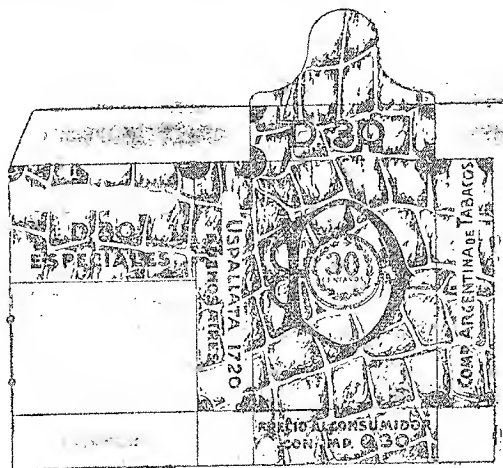 D 30
D 30
ESPECIALES
USPALLATA 1720
BUENOS AIRES
30
CENTAVOS
COMP. ARGENTINA DE TABACOS
PRECIO AL CONSUMIDOR
CON IMP. @ 30